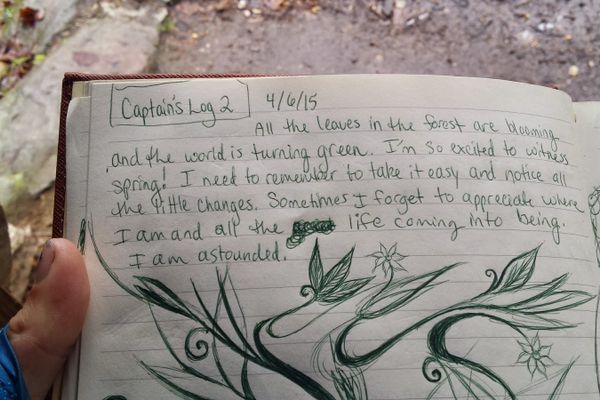 Captain's Log 2 4/6/15
All the leaves in the forest are blooming
and the world is turning green. I'm so excited to witness
spring! I need to remember to take it easy and notice all
the little changes. Sometimes I forget to appreciate where
I am and all the life coming into being.
I am astounded.